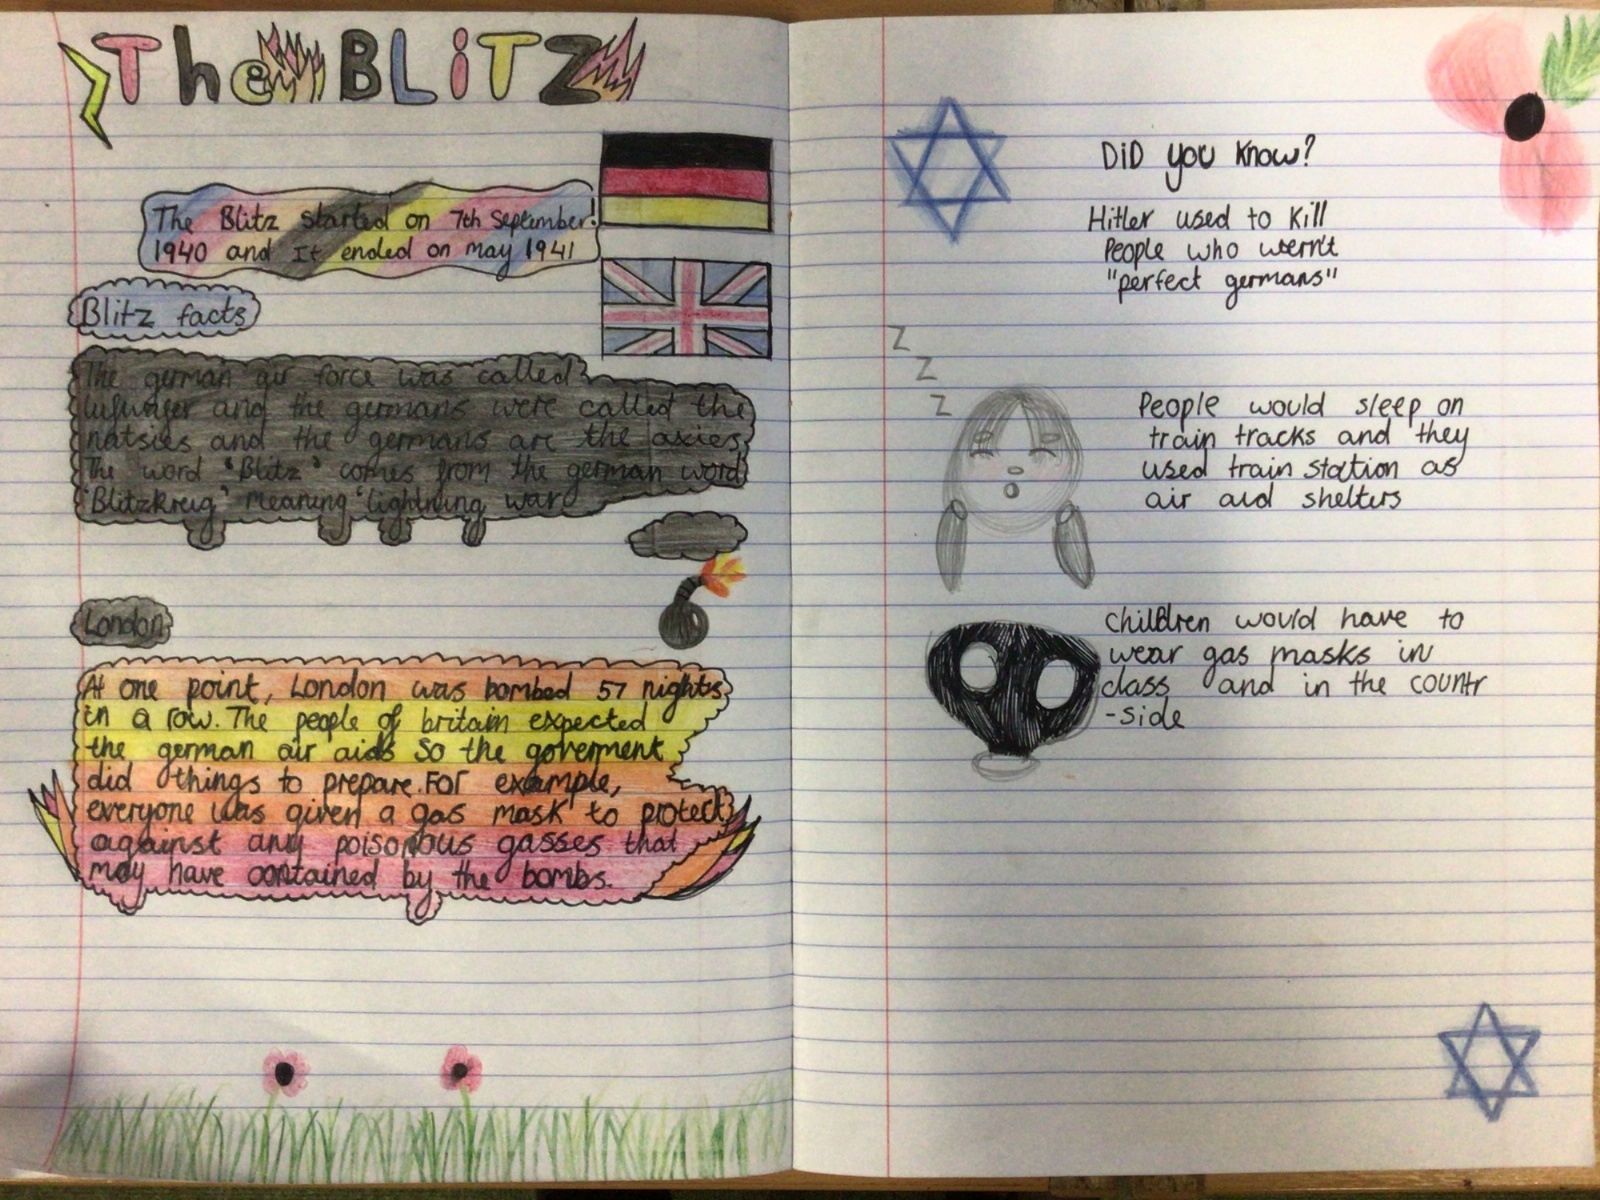 The BLiTZ
The Blitz started on 7th September!
1940 and It ended on may 1941
Blitz facts
The german air force was called
lufwafer and the germans were called the
natsies and the germans are the axies.
The word 'Blitz' comes from the german word
'Blitzkreig' meaning 'lightning war
London
At one point, London was bombed 57 nights
in a row. The people of britain expected
the german air aids so the goverment
did things to prepare. For example,
everyone was given a gas mask to protect
against any poisonous gasses that
may have contained by the bombs.
DiD you Know?
Hitler used to kill
People who wern't
"perfect germans"
Z
Z
Z
People would sleep on
train tracks and they
used train station as
air aid shelters
children would have to
wear gas masks in
class and in the countr
-side